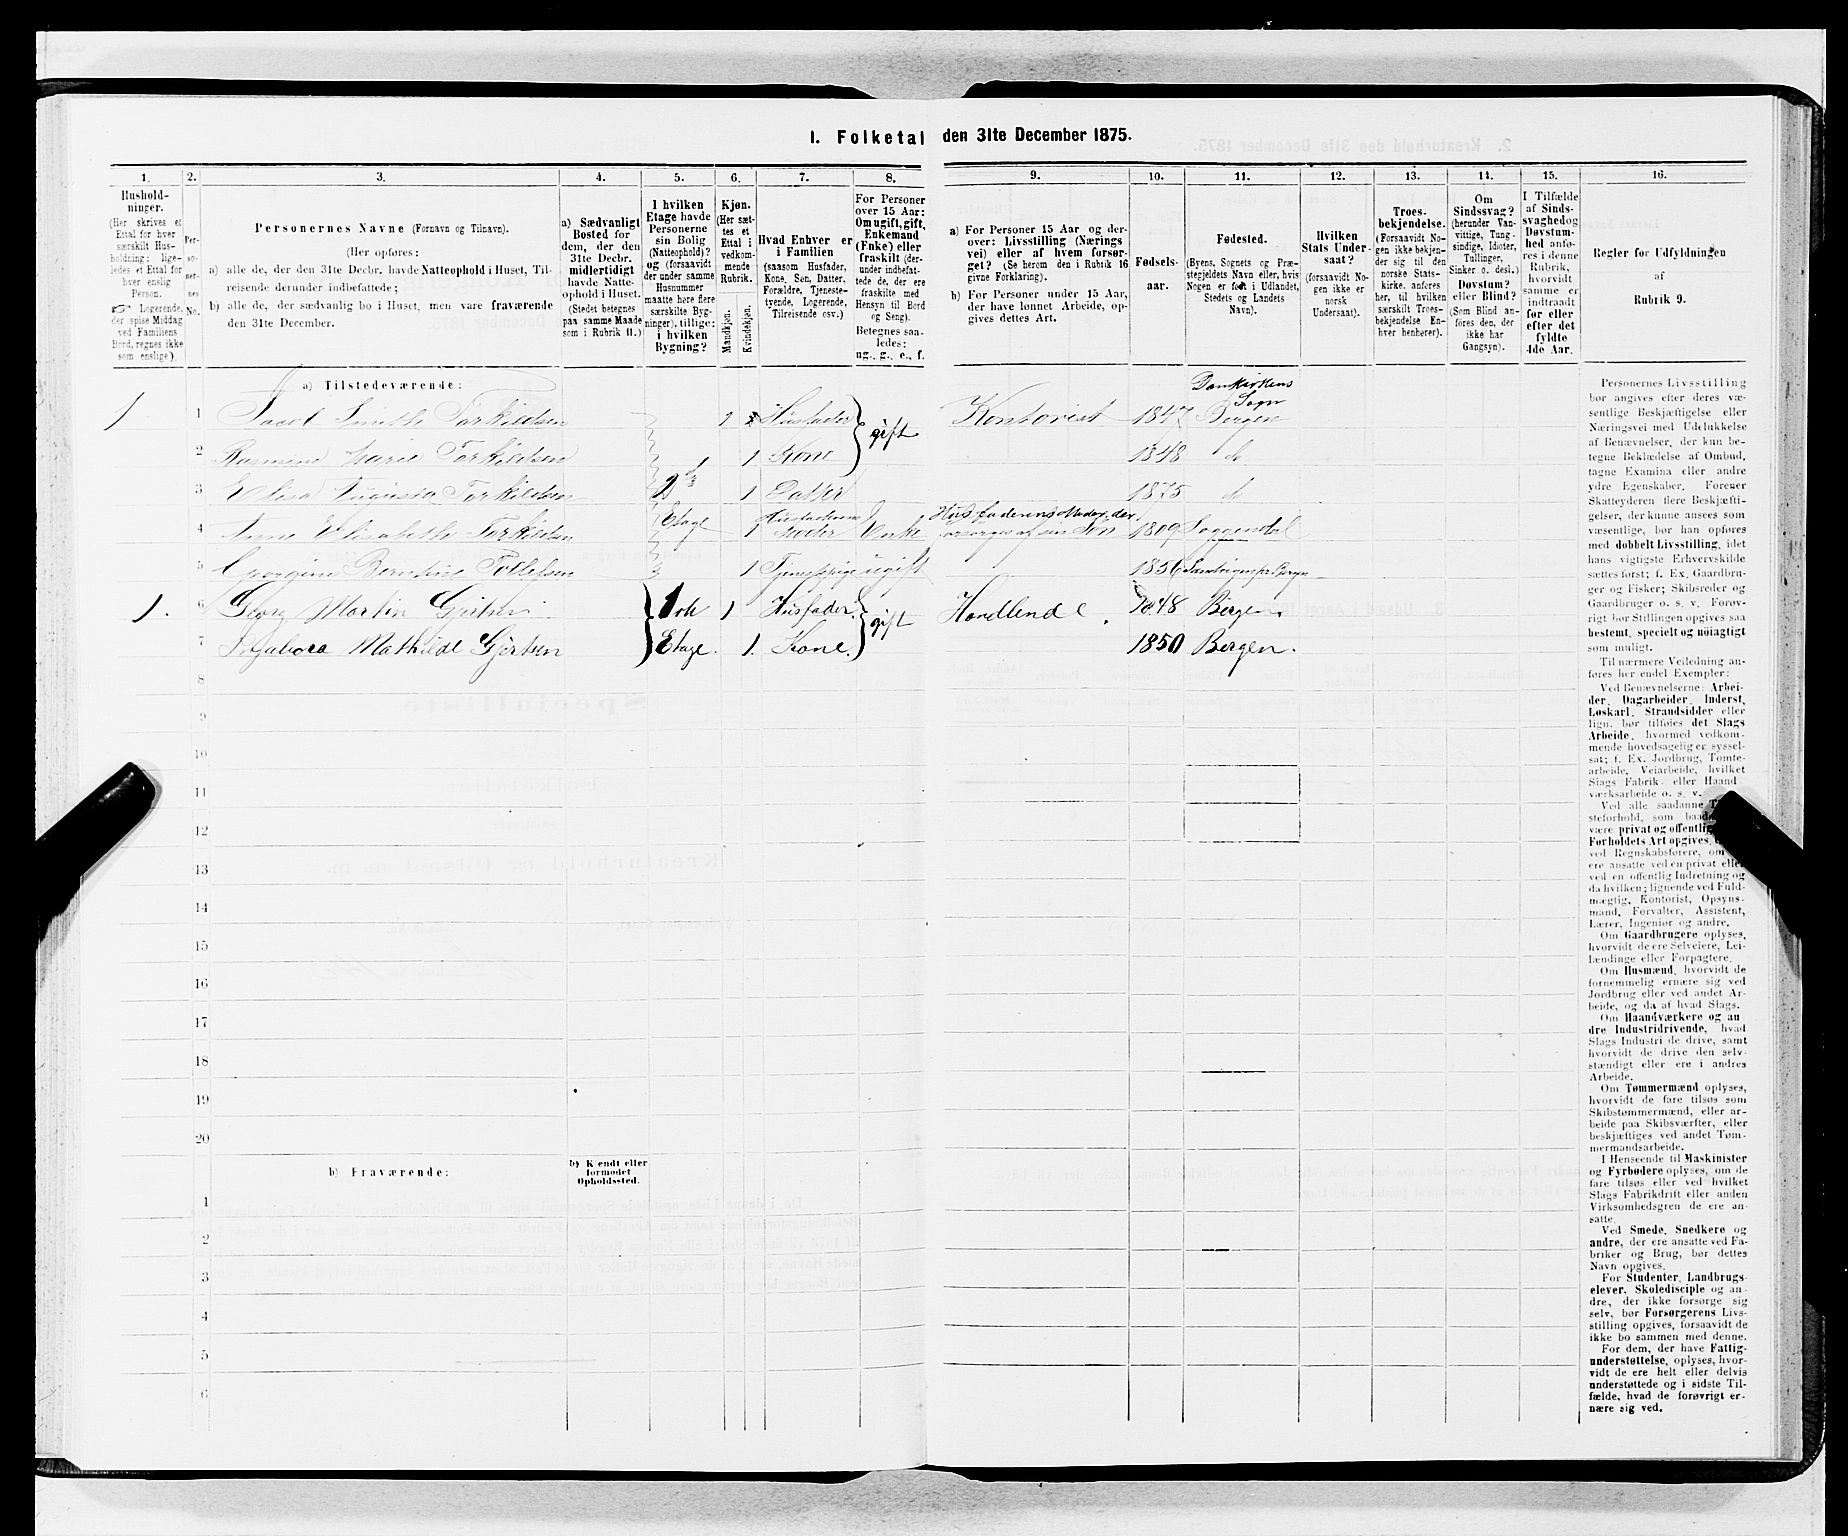 1. Folketal den 31te December 1875.
1. 2. 3. 4. 5. 6. 7. 8. 9. 10. 11. 12. 13. 14. 15. 16.
Husholdninger.
(Her skrives et
Ettal for hver
særskilt Husholdning;
ligeledes et Ettal for
hver enslig
Person.
Logerende,
der spise Middag
ved Familiens
Bord, regnes ikke
som enslige).
Personernes No.
Personernes Navne (Fornavn og Tilnavn).
(Her opføres:
a) alle de, der den 31te Decbr. havde Natteophold i Huset, Tilreisende derunder indbefattede;
b) alle de, der sædvanlig bo i Huset, men vare fraværende
den 31te December.
a) Sædvanligt
Bosted for
dem, der den
31te Decbr.
midlertidigt
havde Natteophold i Huset.
(Stedet betegnes
paa samme Maade
som i Rubrik 11.)
I hvilken
Etage havde
Personerne
sin Bolig
(Natteophold)?
og (forsaavidt
der under samme
Husnummer
maatte høre flere
særskilte Bygninger), tillige:
i hvilken
Bygning?
Kjøn.
(Her sættes et
Ettal i
vedkommende
Rubrik.
Mandkjøn.
Kvindekjøn.
Hvad Enhver er
i Familien
(saasom Husfader,
Kone, Søn, Datter,
Forældre, Tjenestetyende, Logerende,
Tilreisende osv.)
For Personer
over 15 Aar:
Om ugift, gift,
Enkemand
(Enke) eller
fraskilt (derunder indbefattede de, der ere
fraskilte med
Hensyn til Bord
og Seng).
Betegnes saaledes:
ug., g., e., f.
a) For Personer 15 Aar og derover: Livsstilling (Næringsvei) eller af hvem forsørget? (Se herom den i Rubrik 16
givne Forklaring).
b) For Personer under 15 Aar,
der have lønnet Arbeide, opgives dettes Art.
Fødselsaar.
Fødested.
(Byens, Sognets og Præstegjeldets Navn eller, hvis
Nogen er født i Udlandet,
Stedets og Landets
Navn).
Hvilken
Stats Undersaat?
(forsaavidt Nogen ikke er
norsk
Undersaat).
Troesbekjendelse.
(Forsaavidt Nogen ikke bekjender sig til den
norske Statskirke, anføres
her, til hvilken
særskilt Troesbekjendelse Enhver henhører).
Om
Sindssvag?
(herunder Vanvittige, Tungsindige, Idioter,
Tullinger,
Sinker o. desl.)
Døvstum?
eller Blind?
(Som Blind anføres den, der
ikke har
Gangsyn).
I Tilfælde
af Sindssvaghed og
Døvstumhed anføres i denne
Rubrik,
hvorvidt
samme er
indtraadt
før eller
efter det
fyldte
4de Aar.
Regler for Udfyldningen
af
Rubrik 9.
a) Tilstedeværende:
1 1 Jacob Smith Torkildsen 1 Husfader gift Kontorist 1847 Domkirkens Sogn Bergen
2 Rasmine Marie Torkildsen 1 Kone 1848 do
3 Elisa Augusta Torkildsen 2 Etage 1 Datter 1875 do
4 Anne Elisabeth Torkildsen 1 Husfaderens Moder Enke Husfaderens Moder, der forsørges af sin Søn 1809 Soggendal
5 Georgine Berntine Tollefsen 1 ugift 1856
1. 6 Georg Martin Gjertsen 1 Etage 1 Husfader gift Handlende. 1848 Bergen.
7 Ingeborg Mathilde Gjertsen 1. Kone. 1850 Bergen.
8
9
10
11
12
13
14
15
16
17
18
19
20
b) Fraværende:
b) Kjendt eller
formodet
Opholdssted.
1
2
3
4
5
6
Personernes Livsstilling
bør angives efter deres væsentlige Beskjæftigelse eller
Næringsvei med Udelukkelse
af Benævnelser, der kun betegne Beklædelse af Ombud,
tagne Examina eller andre
ydre Egenskaber. Forener
Skatteyderen flere Beskjæftigelser, der kunne ansees som
væsentlige, bør han opføres
med dobbelt Livsstilling, idet
hans vigtigste Erhvervskilde
sættes først; f. Ex. Gaardbruger og Fisker; Skibsreder og
Gaardbruger o. s. v. Forøvrigt bør Stillingen opgives saa
bestemt, specielt og nøiagtigt
som muligt.
Til nærmere Veiledning anføres her endel Exempler:
Ved Benævnelserne: Arbeider, Dagarbeider, Inderst,
Løskarl, Strandsidder eller
lign. bør tilføies det Slags
Arbeide, hvormed vedkommende hovedsagelig er sysselsat; f. Ex. Jordbrug, Tomtearbeide, Veiarbeide, hvilket
Slags Fabrik- eller Haandværksarbeide o. s. v.
Ved alle saadanne
være privat og offentlig
Forholdets Art opgives,
ved Regnskabsførere, om
ere ansatte ved en privat eller
ved en offentlig Indretning og
da hvilken; lignende ved Fuldmægtig, Kontorist, Opsynsmand, Forvalter, Assistent,
Lærer, Ingeniør og andre.
Om Gaardbrugere oplyses,
hvorvidt de ere Selveiere, Leilændinge eller Forpagtere.
Om Husmænd, hvorvidt de
fornemmelig ernære sig ved
Jordbrug eller ved andet Arbeide, og da af hvad Slags.
Om Haandværkere og andre Industridrivende, hvad
Slags Industri de drive, samt
hvorvidt de drive den selvstændigt eller ere i andres
Arbeide.
Om Tømmermænd oplyses,
hvorvidt de fare tilsøs som
Skibstømmermænd, eller arbeide paa Skibsværfter, eller
beskjæftiges ved andet Tømmermandsarbeide.
I Henseende til Maskinister
og Fyrbødere oplyses, om de
fare tilsøs eller ved hvilket
Slags Fabrikdrift eller anden
Virksomhedsgren de ere ansatte.
Ved Smede, Snedkere og
andre, der ere ansatte ved Fabriker og Brug, bør dettes
Navn opgives.
For Studenter, Landbrugselever, Skoledisciple og andre, der ikke forsørge sig
selv, bør Forsørgerens Livsstilling opgives, forsaavidt de
ikke bo sammen med denne.
For dem, der have Fattigunderstøttelse, oplyses, hvorvidt de ere helt eller delvis
understøttede og i sidste Tilfælde, hvad de forøvrigt ernære sig ved.